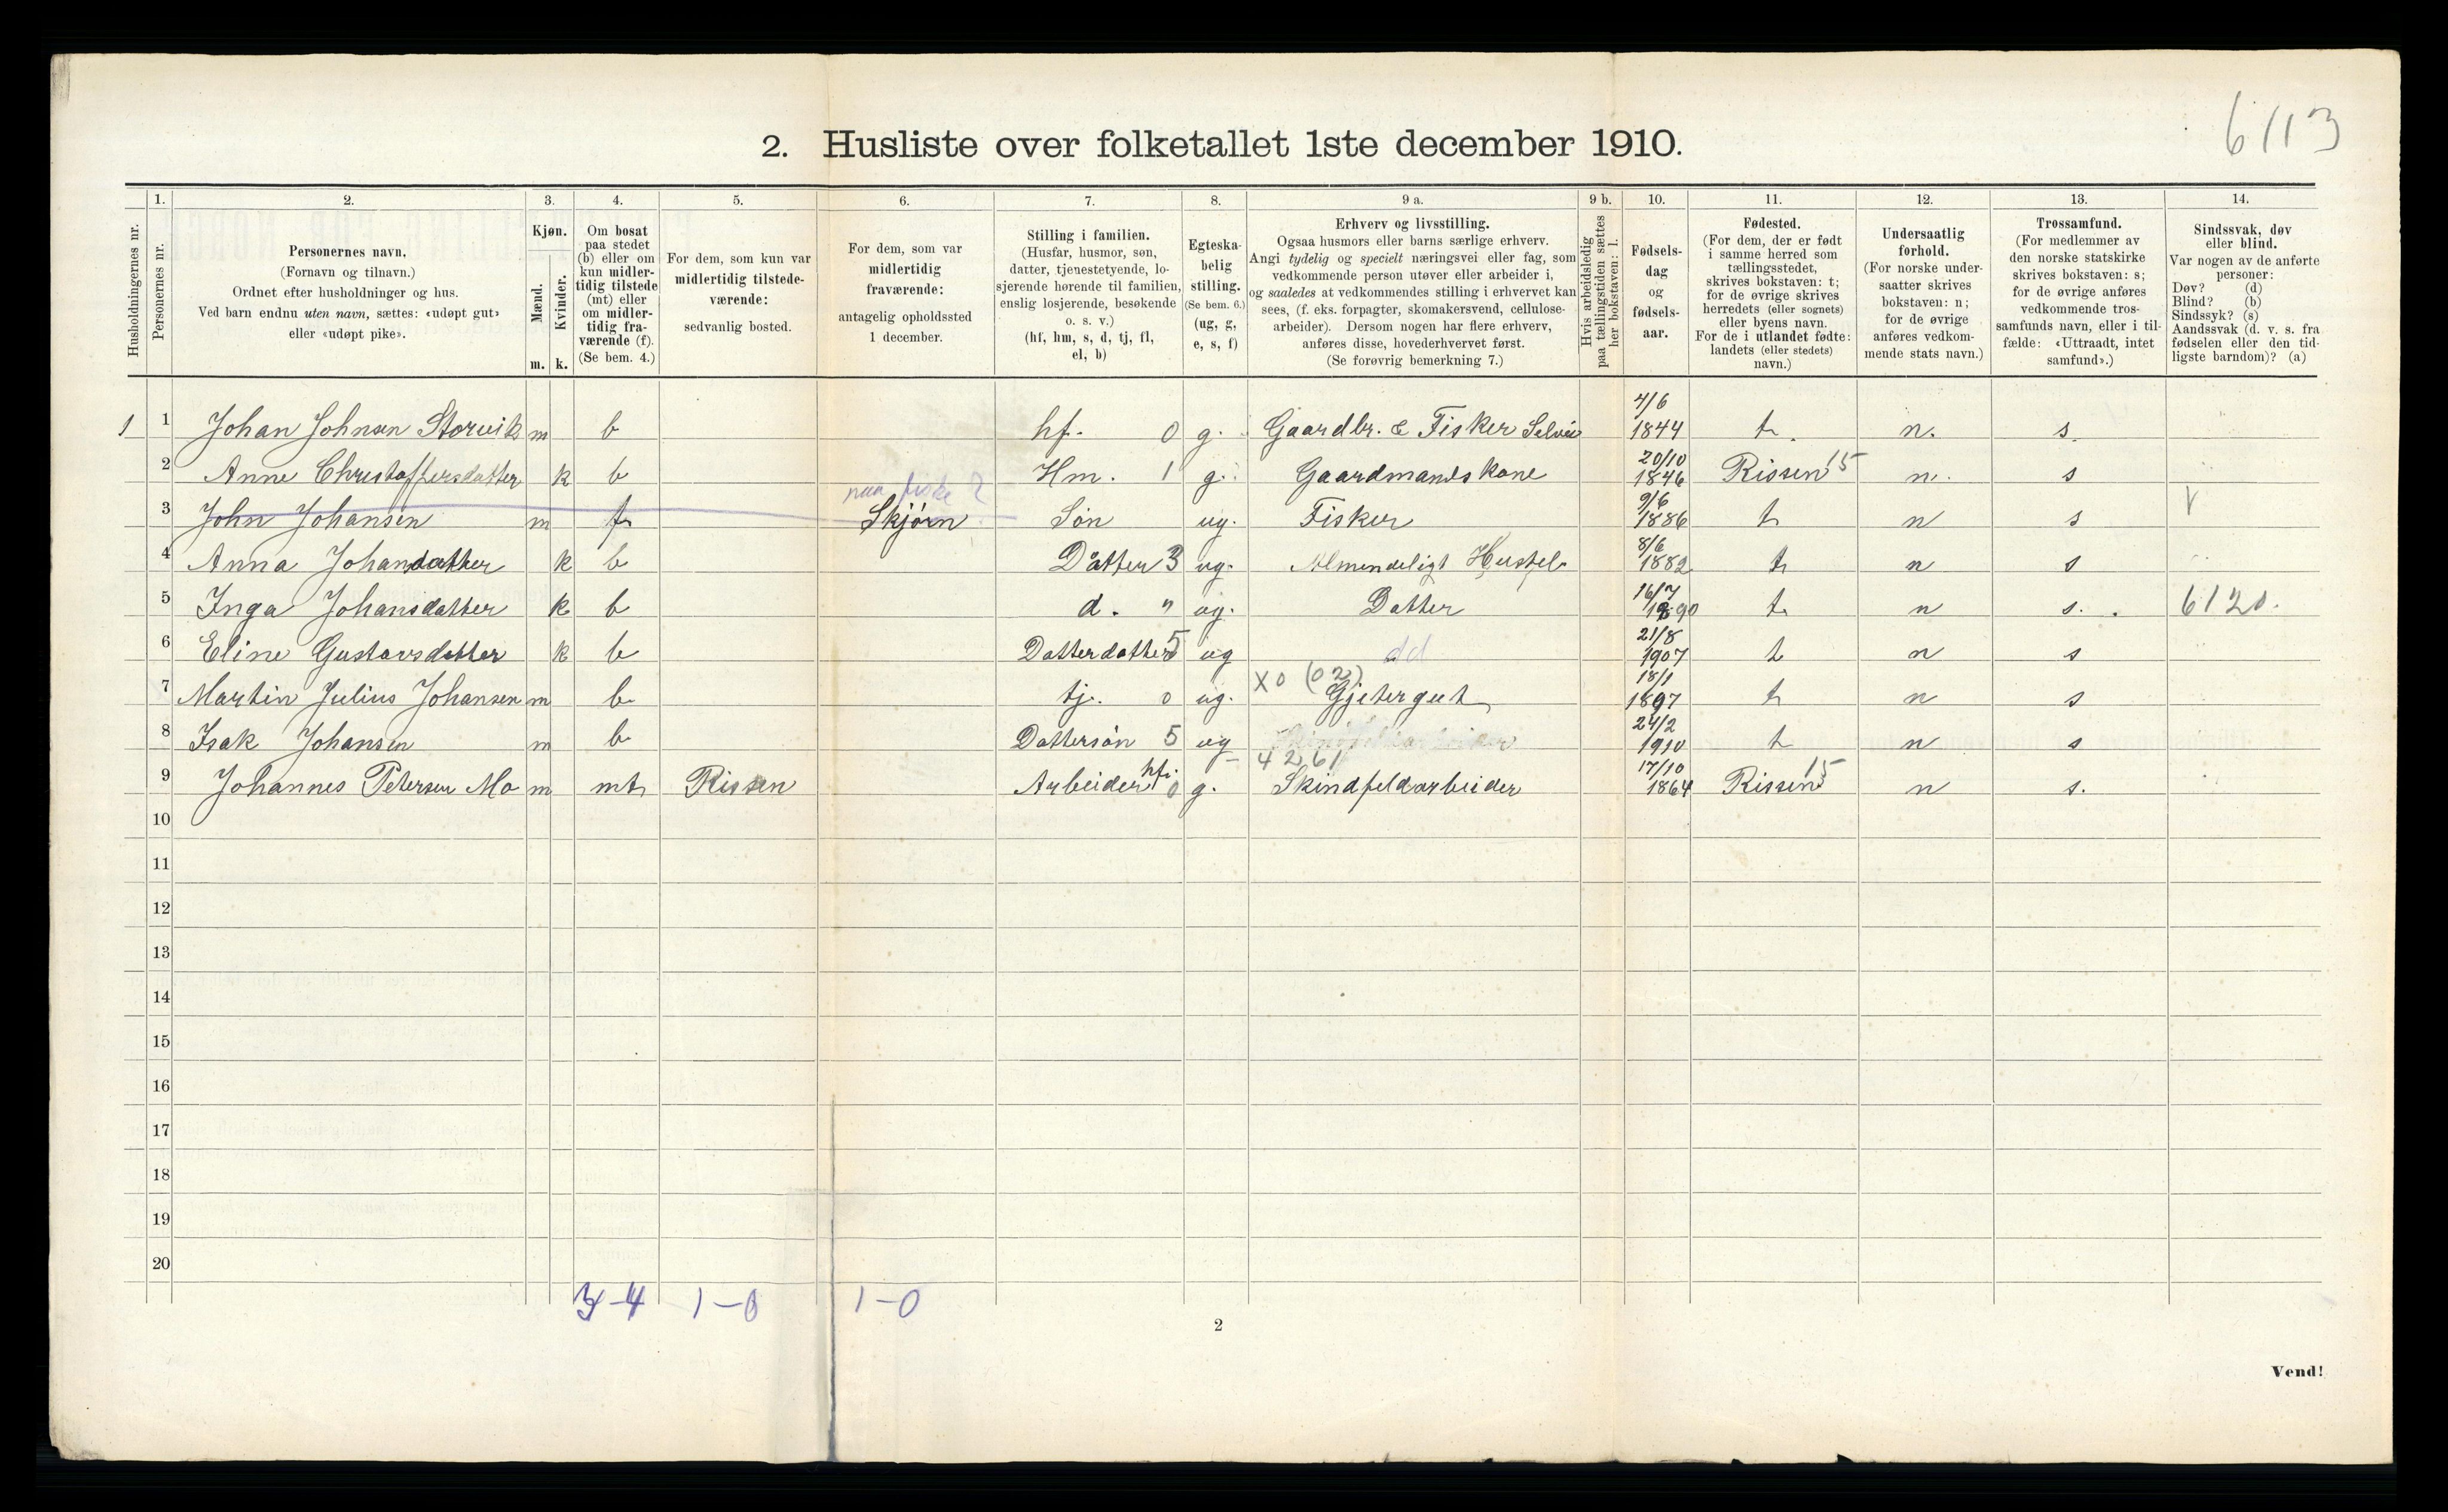 6113
2. Husliste over folketallet 1ste december 1910.
Husholdningernes nr.
1.
Personernes nr.
2.
Personernes navn.
(Fornavn og tilnavn.)
Ordnet efter husholdninger og hus.
Ved barn endnu uten navn, sættes: «udøpt gut»
eller «udøpt pike».
3.
Kjøn.
Mænd.
Kvinder.
m. k.
4.
Om bosat
paa stedet
(b) eller om
kun midler-
tidig tilstede
(mt) eller
om midler-
tidig fra-
værende (f).
(Se bem. 4.)
5.
For dem, som kun var
midlertidig tilstede-
værende:
sedvanlig bosted.
6.
For dem, som var
midlertidig
fraværende:
antagelig opholdssted
1 december.
7.
Stilling i familien.
(Husfar, husmor, søn,
datter, tjenestetyende, lo-
sjerende hørende til familien,
enslig losjerende, besøkende
o. s. v.)
(hf, hm, s, d, tj, fl,
el, b)
8.
Egteska-
belig
stilling.
(Se bem. 6.)
(ug, g,
e, s, f)
9 a.
Erhverv og livsstilling.
Ogsaa husmors eller barns særlige erhverv.
Angi tydelig og specielt næringsvei eller fag, som
vedkommende person utøver eller arbeider i,
og saaledes at vedkommendes stilling i erhvervet kan
sees, (f. eks. forpagter, skomakersvend, cellulose-
arbeider). Dersom nogen har flere erhverv,
anføres disse, hovederhvervet først.
(Se forøvrig bemerkning 7.)
9 b.
Hvis arbeidsledig
paa tællingstiden sættes
her bokstaven: l.
10.
Fødsels-
dag
og
fødsels-
aar.
11.
Fødested.
(For dem, der er født
i samme herred som
tællingsstedet,
skrives bokstaven: t;
for de øvrige skrives
herredets (eller sognets)
eller byens navn.
For de i utlandet fødte:
landets (eller stedets)
navn.)
12.
Undersaatlig
forhold.
(For norske under-
saatter skrives
bokstaven: n;
for de øvrige
anføres vedkom-
mende stats navn.)
13.
Trossamfund.
(For medlemmer av
den norske statskirke
skrives bokstaven: s;
for de øvrige anføres
vedkommende tros-
samfunds navn, eller i til-
fælde: «Uttraadt, intet
samfund».)
14.
Sindssvak, døv
eller blind.
Var nogen av de anførte
personer:
Døv? (d)
Blind? (b)
Sindssyk? (s)
Aandssvak (d. v. s. fra
fødselen eller den tid-
ligste barndom)? (a)
1 1 Johan Johnsen Storvik m b hf. 0 g. Gaardbr. & Fisker Selveie 4/6 1844 t. n. s.
2 Anne Christoffersdatter k b Hm. 1 g. Gaardmandskone 20/10 1846 Rissen 15 n. s
paa fiske?
3 John Johansen m f Skjørn Søn ug. Fisker 9/6 1886 t n s V
4 Anna Johandatter k b Datter 3 ug. Almendeligt Hustel. 8/6 1882 t n s
5 Inga Johansdatter k b d. " ug. Datter 16/7 1890 t. n s. 6120.
6 Eline Gustavsdatter k b Datterdatter 5 ug dd 21/8 1907 t n s
X0 (02)
7 Martin Julius Johansen m b tj. 0 ug. Gjetergut 18/1 1897 t n s
8 Isak Johansen m b Dattersøn 5 ug 24/2 1910 t n s
4261
9 Johannes Petersen Mo m mt Rissen Arbeider hf. 0 g. Skindfeldarbeider 17/10 1864 Rissen 15 n s.
10
11
12
13
14
15
16
17
18
19
20
3-4 1-0 1-0
2
Vend!